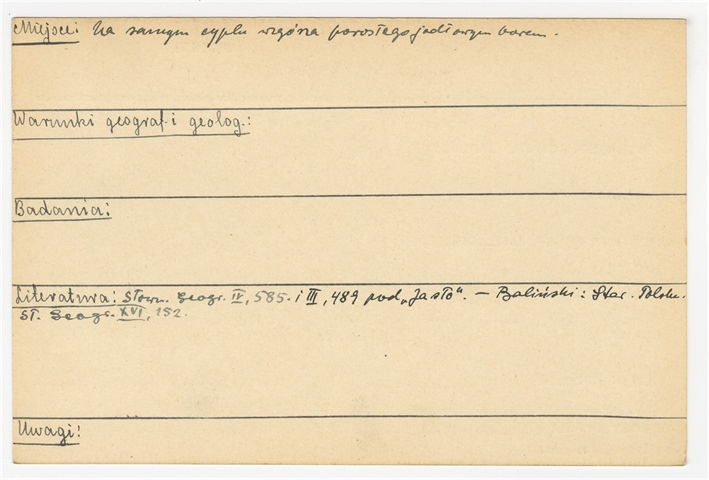 Miejsce: Na samym cyplu wzgórza porosłego jodłowym borem.
Warunki geograf. i geolog.:
Badania:
Literatura: Słown. Geogr. IV, 585. i III, 489 pod „Jasło". — Baliński: Star. Polska.
Sł. Geogr. XVI, 152.
Uwagi: